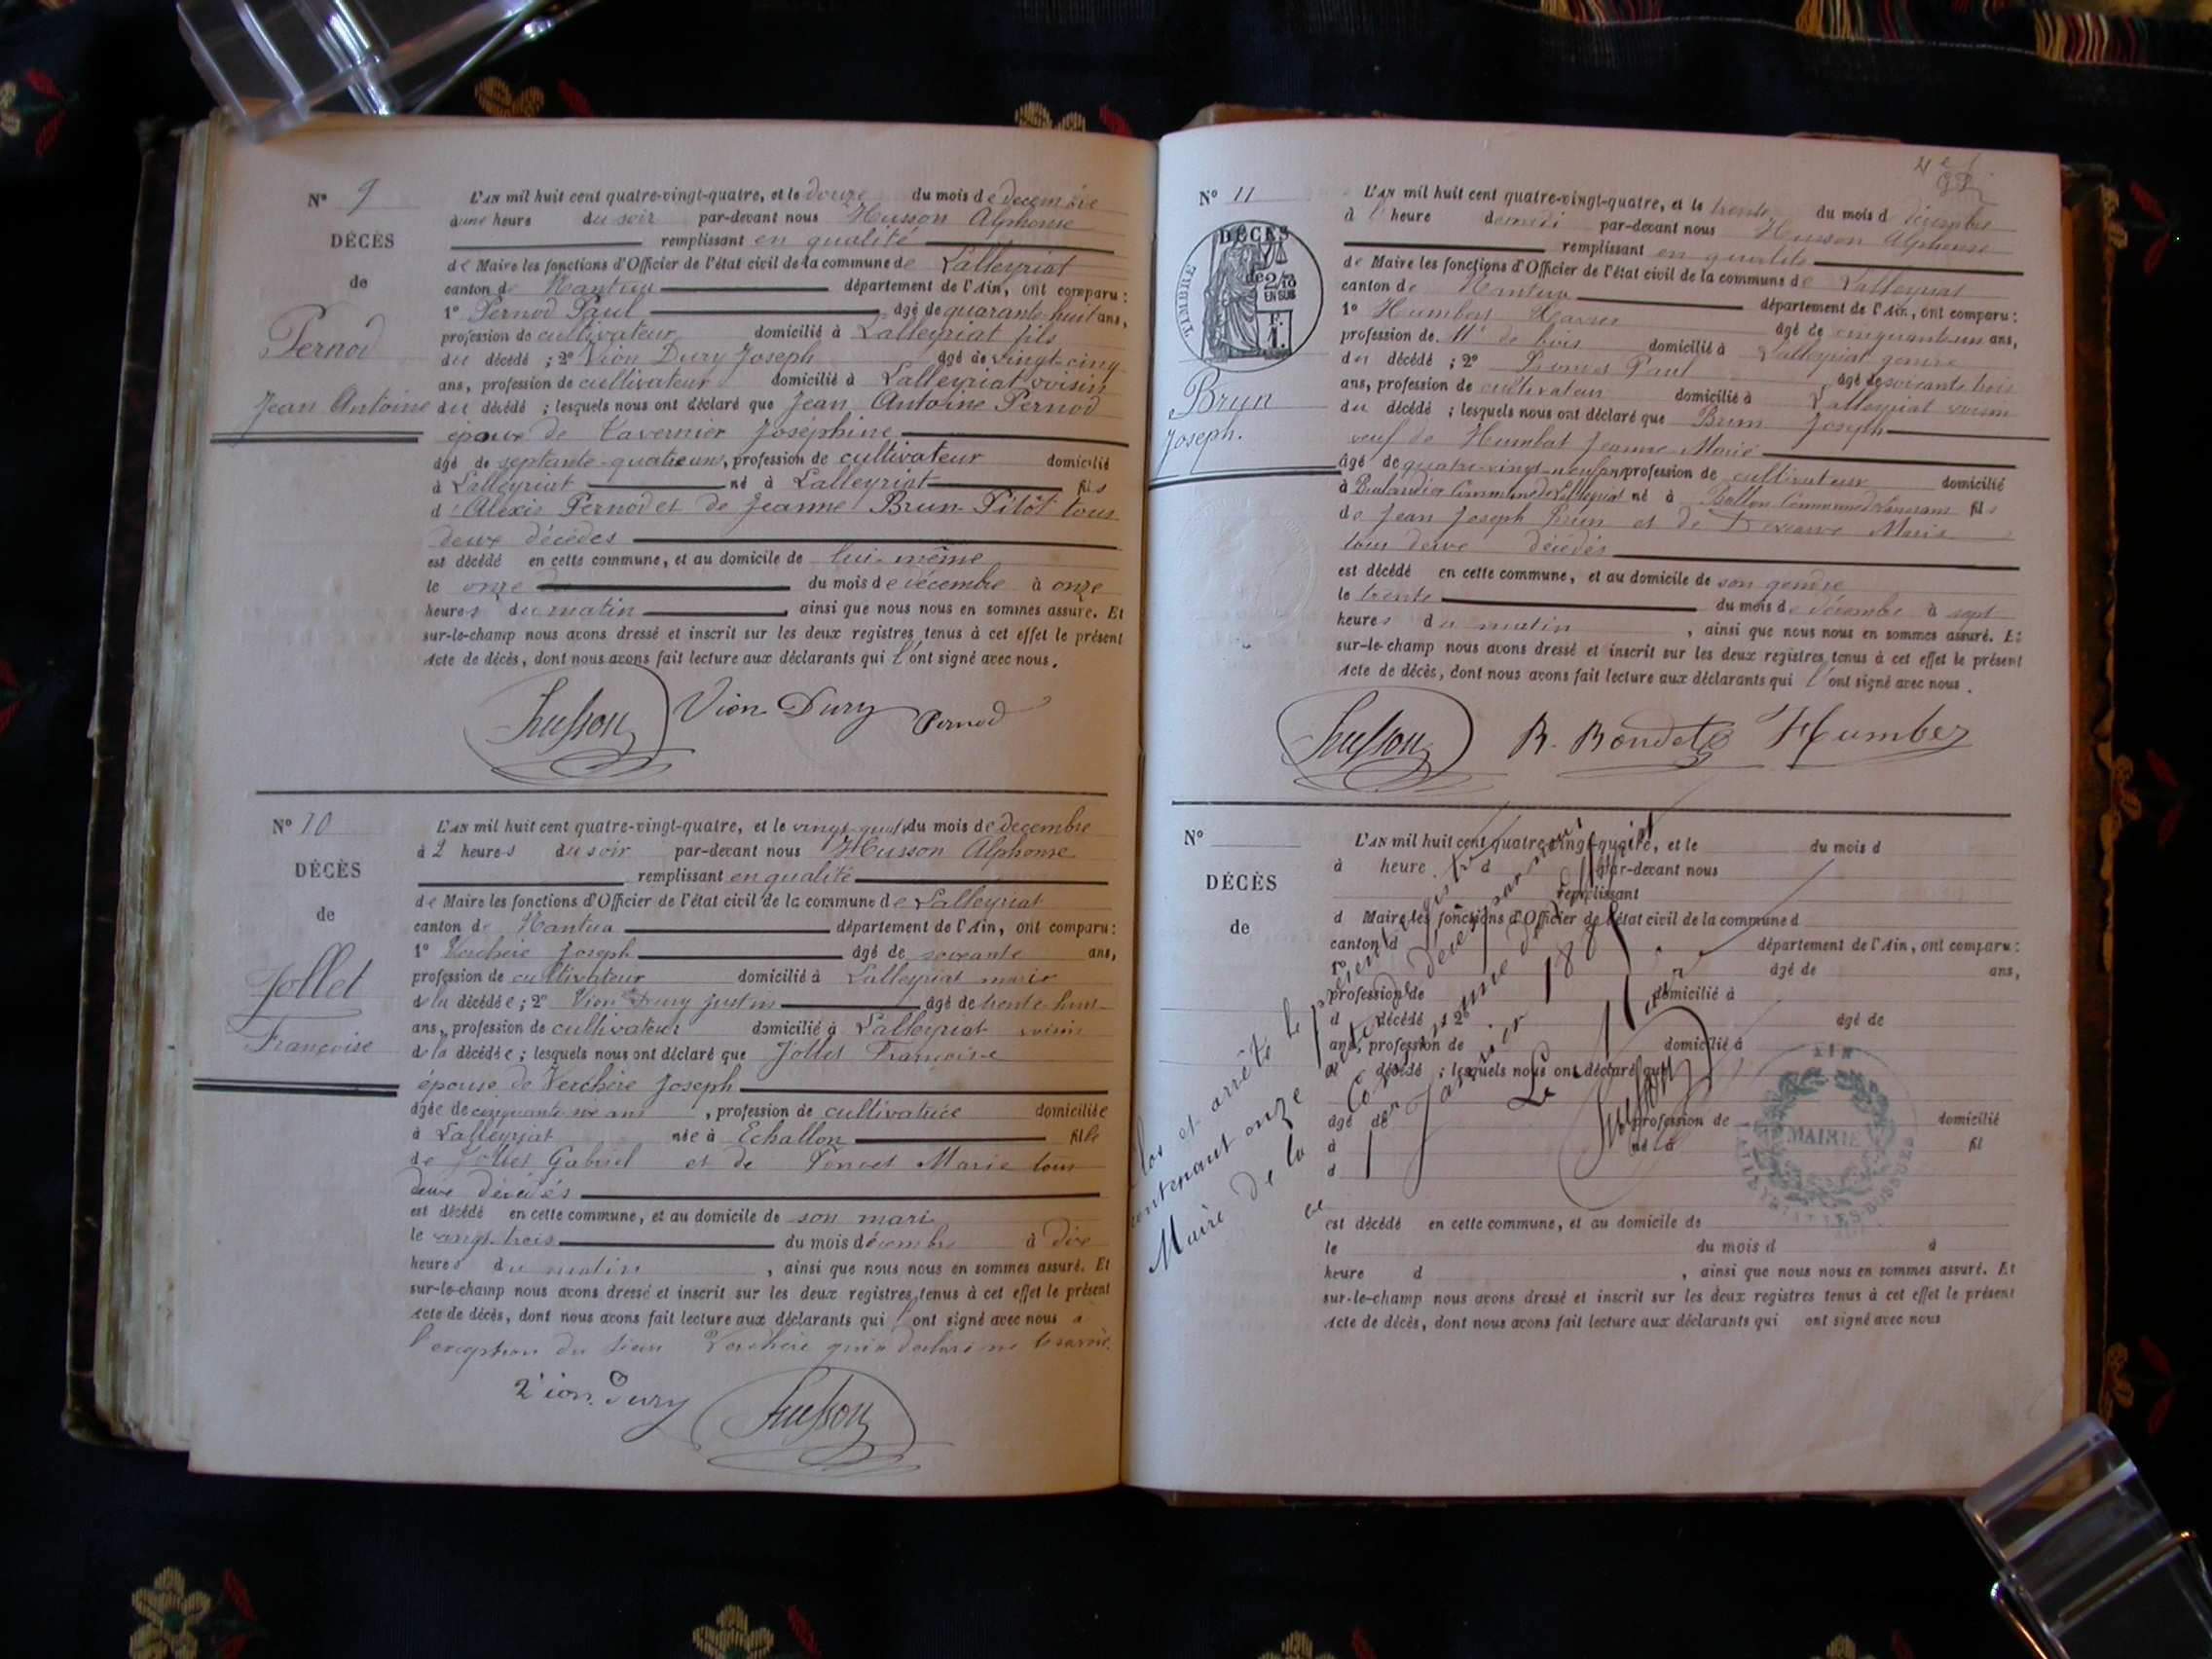 N° 9
DÉCÈS
de
Pernod
Jean Antoine
L'AN mil huit cent quatre-vingt-quatre, et le douze du mois de decembre
à une heure du soir par-devant nous Husson Alphonse
remplissant en qualité
de Maire les fonctions d'Officier de l'état civil de la commune de Lalleyriat
canton de Nantua département de l'Ain, ont comparu :
1° Pernod Paul âgé de quarante-huit ans,
profession de cultivateur domicilié à Lalleyriat fils
du décédé ; 2° Vion Dury Joseph âgé de vingt-cinq
ans, profession de cultivateur domicilié à Lalleyriat voisin
du décédé ; lesquels nous ont déclaré que Jean Antoine Pernod
époux de Tavernier Josephine
âgé de septante-quatre ans, profession de cultivateur domicilié
à Lalleyriat né à Lalleyriat fils
d'Alexis Pernod et de Jeanne Brun-Pilôt tous
deux décédés
est décédé en cette commune, et au domicile de lui-même
le onze du mois de décembre à onze
heures du matin, ainsi que nous nous en sommes assuré. Et
sur-le-champ nous avons dressé et inscrit sur les deux registres tenus à cet effet le présent
Acte de décès, dont nous avons fait lecture aux déclarants qui l'ont signé avec nous.
Husson Vion Dury Pernod
N° 10
DÉCÈS
de
Jollet
Françoise
L'AN mil huit cent quatre-vingt-quatre, et le vingt-quatre du mois de decembre
à 2 heures du soir par-devant nous Husson Alphonse
remplissant en qualité
de Maire les fonctions d'Officier de l'état civil de la commune de Lalleyriat
canton de Nantua département de l'Ain, ont comparu :
1° Verchère Joseph âgé de soixante ans,
profession de cultivateur domicilié à Lalleyriat mari
de la décédée ; 2° Vion Dury Justin âgé de trente-huit
ans, profession de cultivateur domicilié à Lalleyriat voisin
de la décédée ; lesquels nous ont déclaré que Jollet Françoise
épouse de Verchère Joseph
âgée de cinquante six ans, profession de cultivatrice domiciliée
à Lalleyriat née à Echallon fille
de Jollet Gabriel et de Poncet Marie tous
deux décédés
est décédé en cette commune, et au domicile de son mari
le vingt-trois du mois décembre à dix
heures du matin, ainsi que nous nous en sommes assuré. Et
sur-le-champ nous avons dressé et inscrit sur les deux registres tenus à cet effet le présent
Acte de décès, dont nous avons fait lecture aux déclarants qui l'ont signé avec nous à
l'exception du sieur Verchère qui a déclaré ne le savoir.
Vion Dury Husson
N° 11
TIMBRE
DÉCÈS
de
2/10
EN SUS
F.
1.
Brun
Joseph.
L'AN mil huit cent quatre-vingt-quatre, et le trente du mois d décembre
à 1 heure de midi par-devant nous Husson Alphonse
remplissant en qualité
de Maire les fonctions d'Officier de l'état civil de la commune de Lalleyriat
canton de Nantua département de l'Ain, ont comparu :
1° Humbert Xavier âgé de cinquante un ans,
profession de Md de bois domicilié à Lalleyriat gendre
du décédé ; 2° Paul âgé de soixante trois
ans, profession de cultivateur domicilié à Lalleyriat voisin
du décédé ; lesquels nous ont déclaré que Brun Joseph
veuf de Humbert Jeanne-Marie
âgé de quatre-vingt-neuf ans, profession de cultivateur domicilié
à Commune de Lalleyriat né à Ballon Commune de Lancrans fils
de Jean Joseph Brun et de Marie
tous deux décédés
est décédé en cette commune, et au domicile de son gendre
le trente du mois de décembre à sept
heures du matin, ainsi que nous nous en sommes assuré. Et
sur-le-champ nous avons dressé et inscrit sur les deux registres tenus à cet effet le présent
Acte de décès, dont nous avons fait lecture aux déclarants qui l'ont signé avec nous.
Husson B. Bondet Humbert
N°
DÉCÈS
de
L'AN mil huit cent quatre-vingt-quatre, et le du mois d
à heure d par-devant nous
remplissant
d Maire les fonctions d'Officier de l'état civil de la commune d
canton d département de l'Ain, ont comparu :
1° âgé de ans,
profession de domicilié à
d décédé ; 2° âgé de
ans, profession de domicilié à
d décédé ; lesquels nous ont déclaré que
âgé de profession de domicilié
à né à fil
d
est décédé en cette commune, et au domicile de
le du mois d à
heure d, ainsi que nous nous en sommes assuré. Et
sur-le-champ nous avons dressé et inscrit sur les deux registres tenus à cet effet le présent
Acte de décès, dont nous avons fait lecture aux déclarants qui ont signé avec nous
Clos et arrêté le présent registre
contenant onze actes de décès par nous
Maire de la Commune de
ce 1er Janvier 188
Le Maire
Husson
AIN
MAIRIE